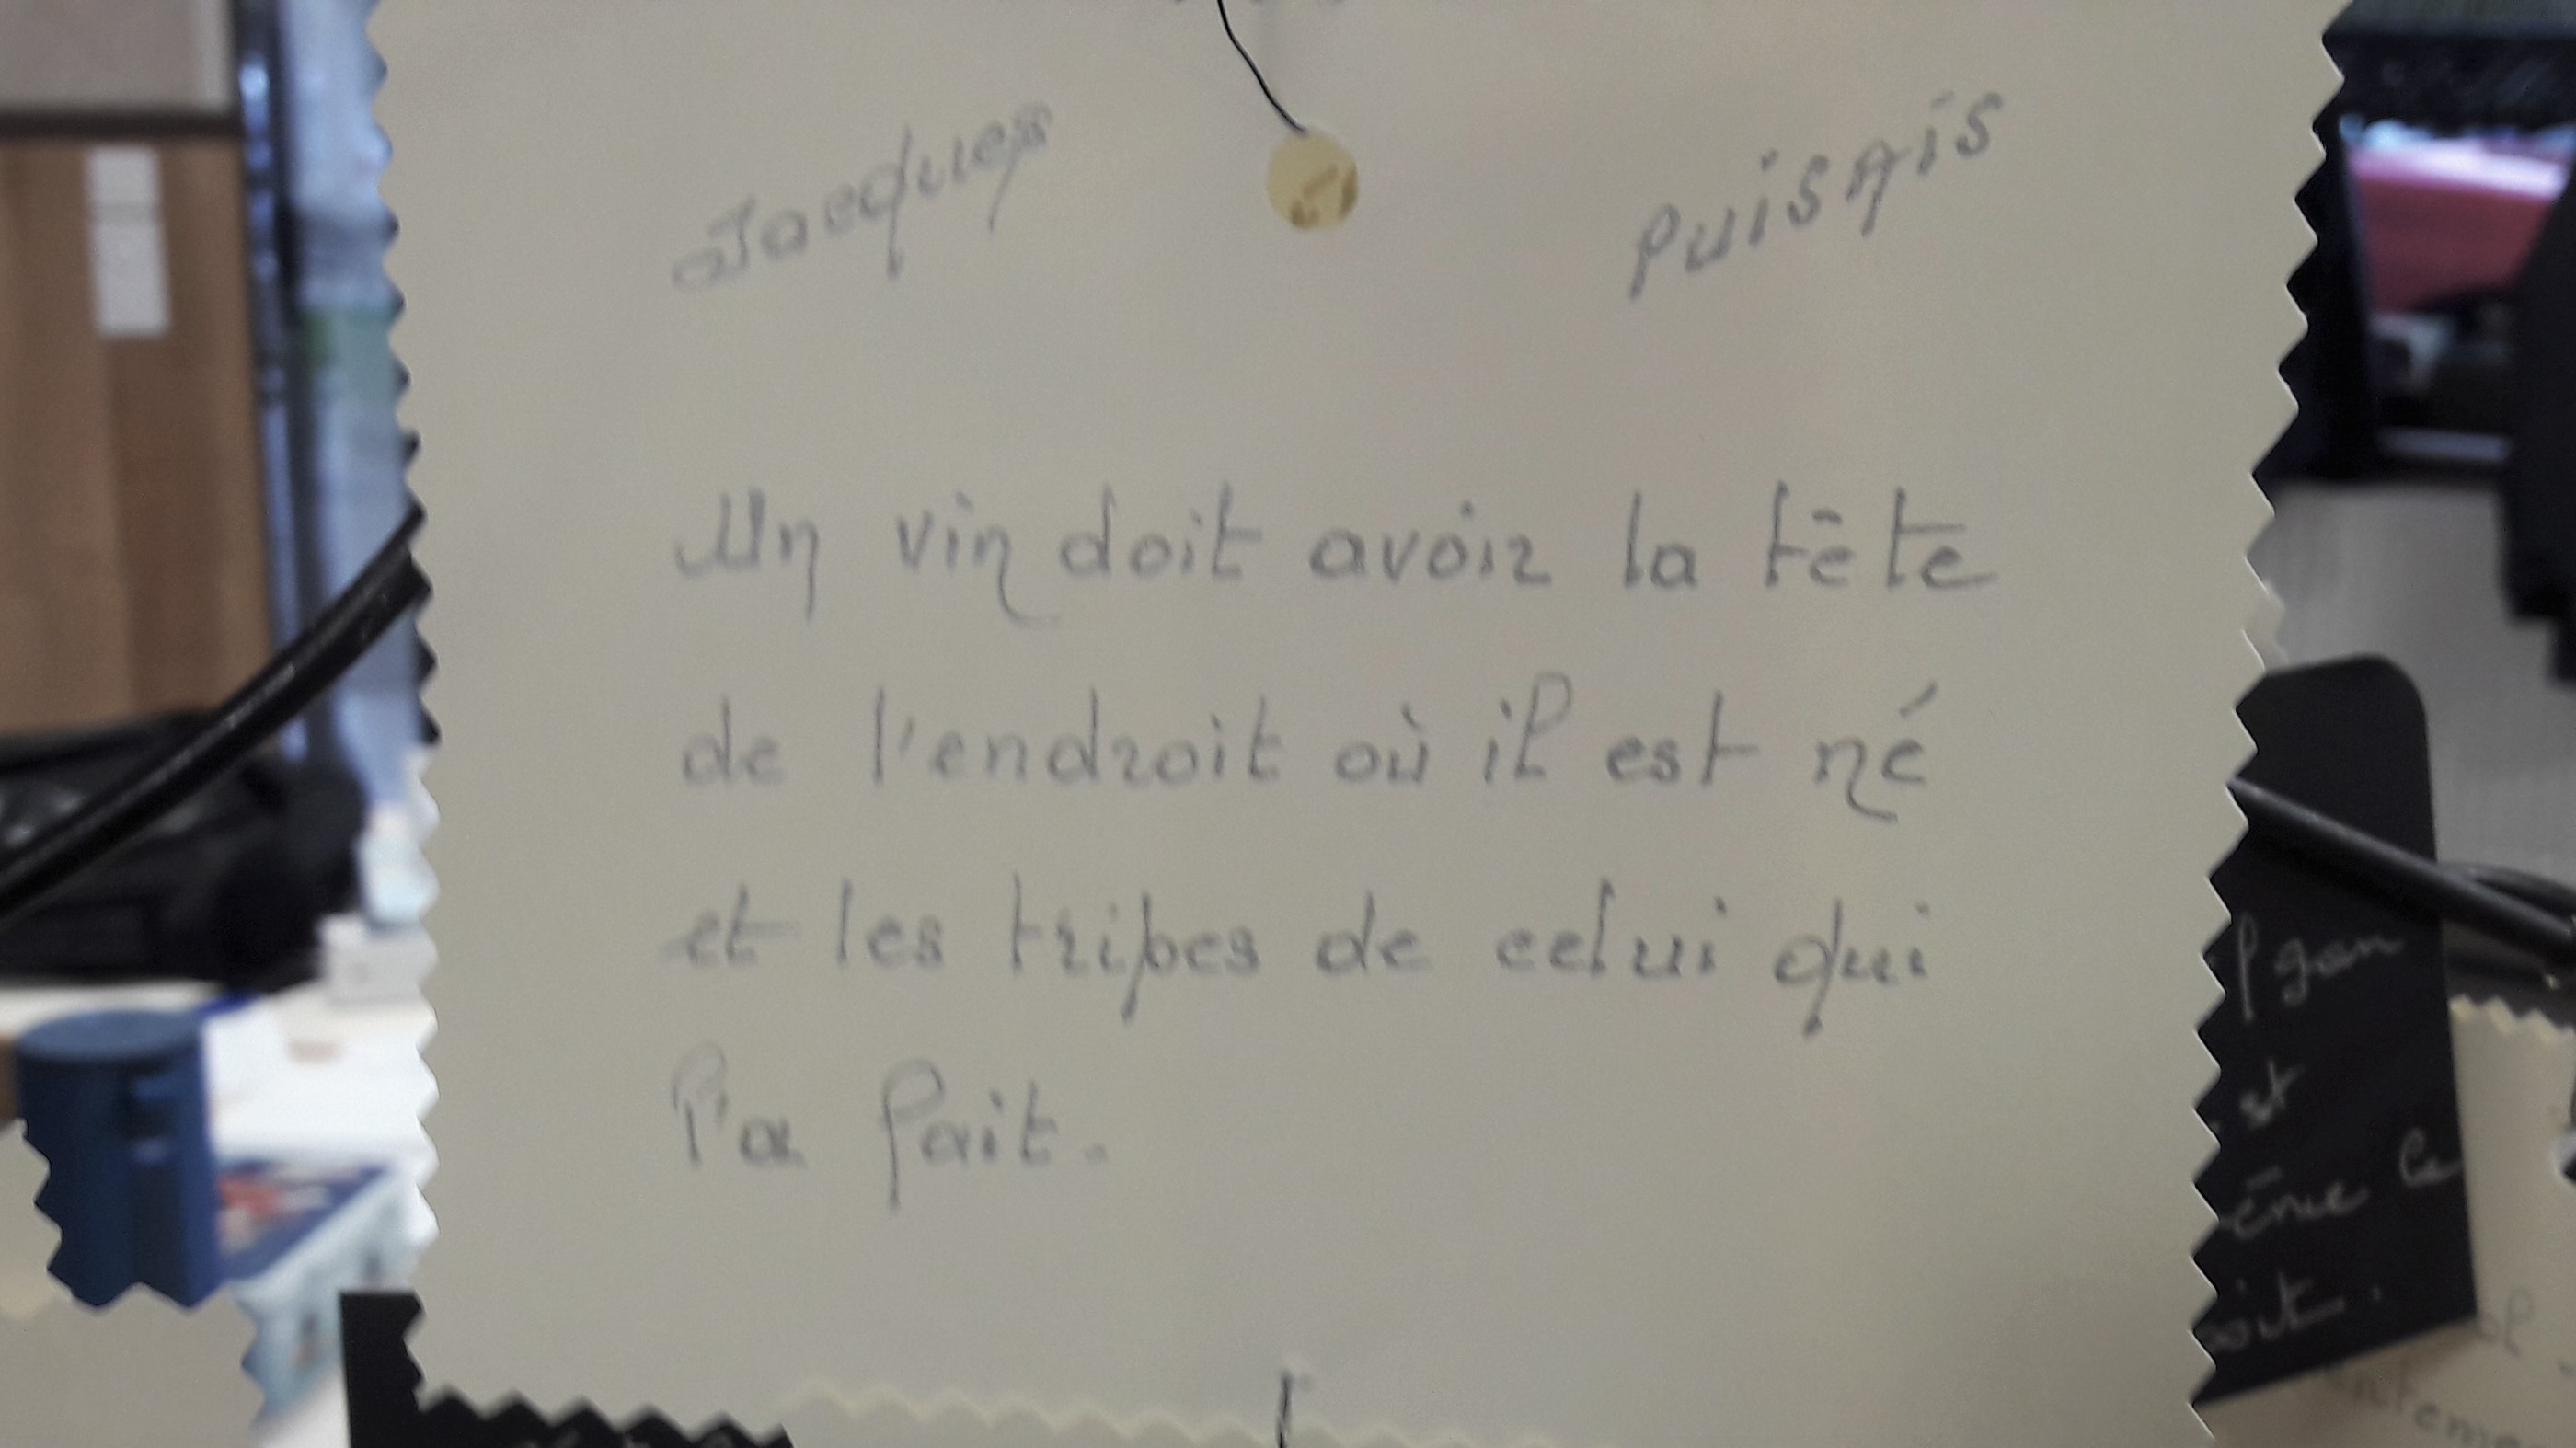 Jacques PUISAIS
Un vin doit avoir la tête
de l'endroit où il est né
et les tripes de celui qui
l'a fait.
st
oit.